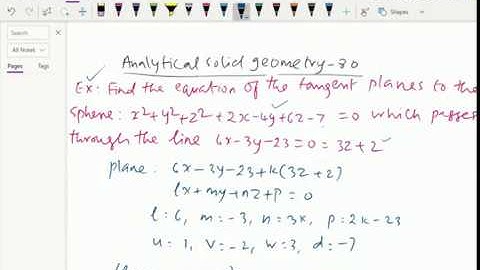 Shapes
All Notes
Pages
Analytical solid geometry-80
Ex: Find the equation of the tangent planes to the
Sphere: x²+y²+z²+2x-4y+6z-7=0 which passes
through the line 6x-3y-23=0=3z+2
plane: 6x-3y-23+k(3z+2)
lx+my+nz+p=0
l=6, m=-3, n=3k, p=2k-23
u=1, v=-2, w=3, d=-7